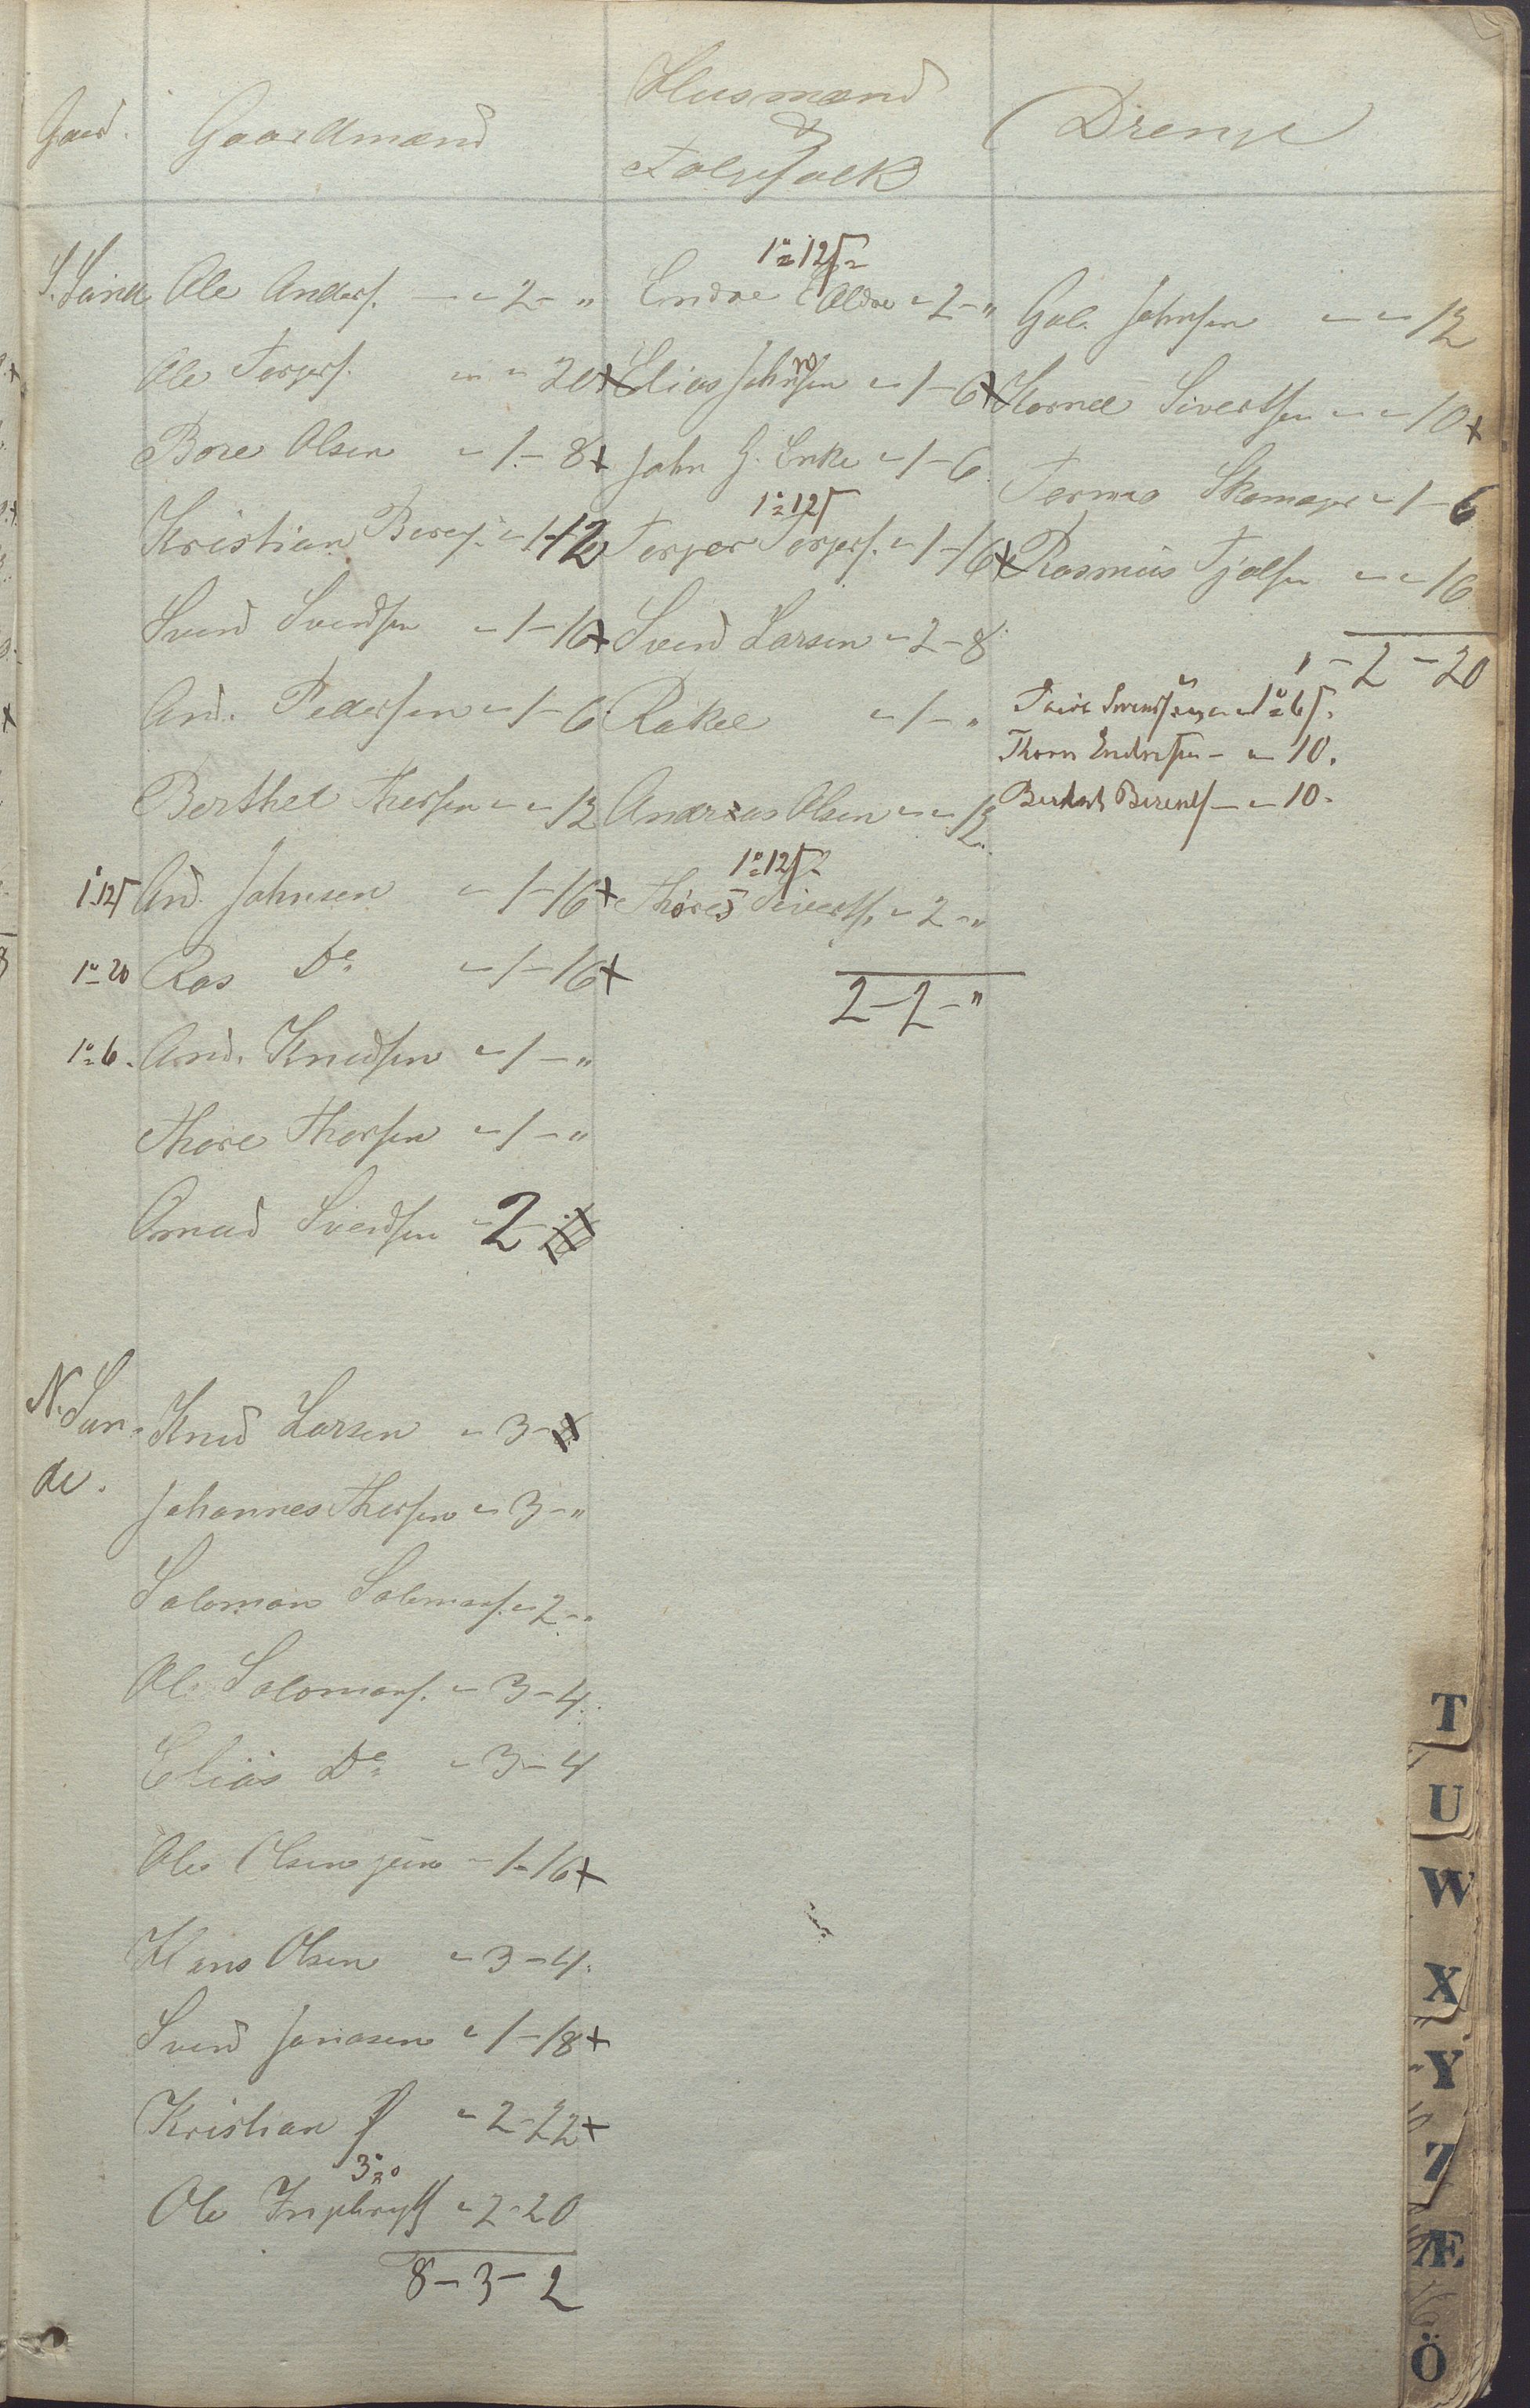 Gaard. Gaardmænd Husmænd & Folgefolk Drenge
S. Sunde Ole Anders. — " 2 - "
Ole Torgers. " - " 20 x
Bore Olsen " 1 - 8 x
Kristian Bores. " 1 - 12
Svend Svendsen " 1 - 16 x
And. Pedersen " 1 - 6
Berthel Thorsen " - " 12
1"12 And. Johnsen " 1 - 16 x
1"20 Ras Do " 1 - 16 x
1"6. And. Knudsen " 1 - "
Thore Thorsen " 1 - "
Omund Svendsen " 2
N. Sunde. Knud Larsen " 3
Johannes Thorsen " 3 - "
Salomon Salomons. " 2 - "
Ole Salomons. " 3 - 4.
Elias Do " 3 - 4
Ole Olsen jun " 1 - 16 x
Hans Olsen " 3 - 4.
Svend Jonasen " 1 - 18 x
Kristian " 2 - 22 x
3"0
Ole " 2 - 20
8 - 3 - 2
1"12
Endre Eldre " 2 - "
Elias Johnsen " 1 - 6 x
John G. Enke " 1 - 6
1"12
Torger Torgers. " 1 - 16 x
Svend Larsen " 2 - 8
Rakel " 1 - "
Andreas Olsen " - " 12
1"12
Thores Siverts. " 2 - "
2 - 2 - "
Gab. Johnsen " - " 12
Kornel Sivertsen " - " 10 x
Skomager " 1 - 6
Rasmus " - " 16
1 - 2 - 20
Svends. 1"6
Thore Endresen - " 10.
Berents. — " 10 -
T
U
W
X
Y
Z
Æ
Ö